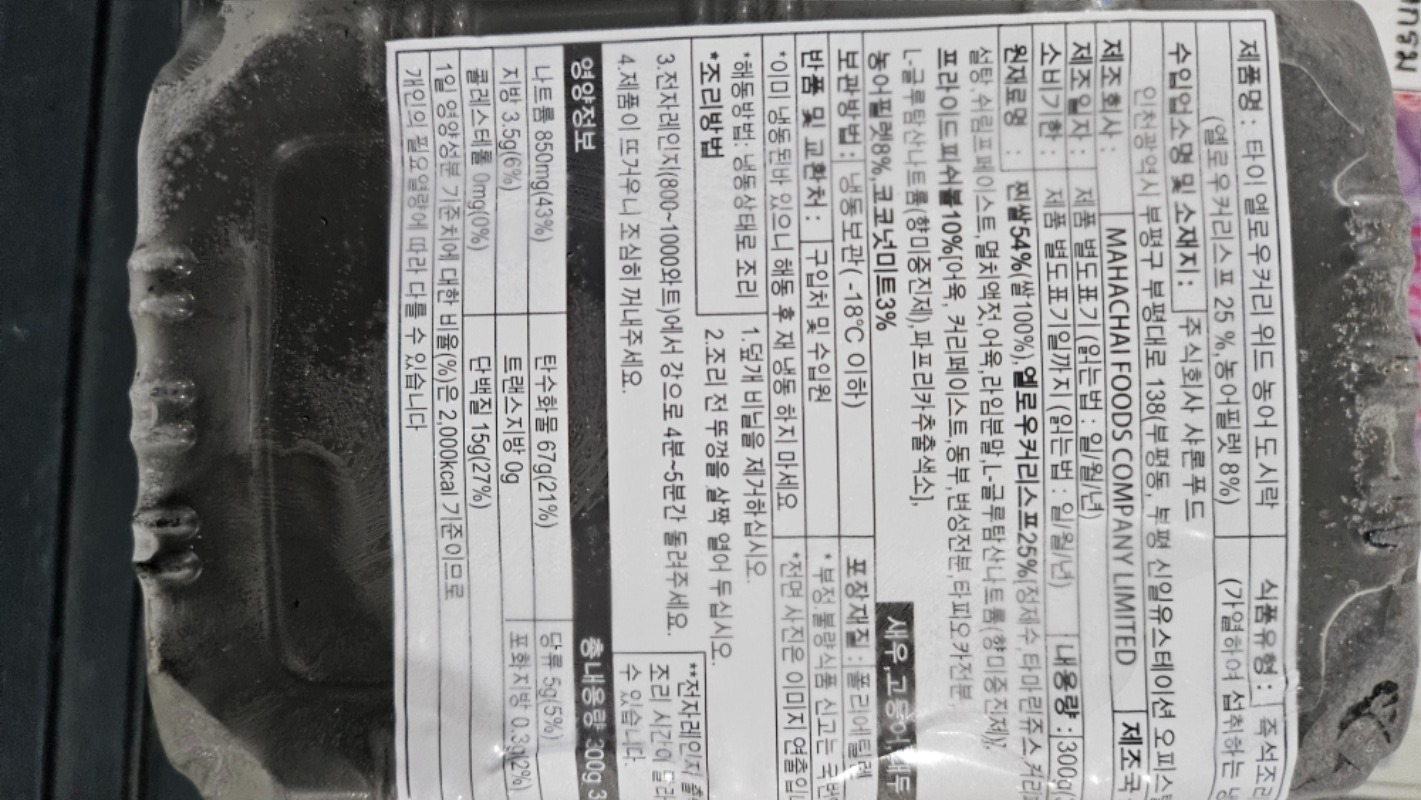 제품명 : 타이 옐로우커리 위드 농어 도시락
식품유형 : 즉석조리
(옐로우커리스프 25 %,농어필렛 8%)
(가열하여 섭취하는 냉
수입업소명 및 소재지 : 주식회사 샤론푸드
인천광역시 부평구 부평대로 138(부평동, 부평 신일유스테이션 오피스텔
제조회사 : MAHACHAI FOODS COMPANY LIMITED
제조국
제조일자 : 제품 별도표기 (읽는법 : 일/월/년)
소비기한 : 제품 별도표기일까지 (읽는법 : 일/월/년)
내용량 : 300g
원재료명 : 찐쌀54%(쌀100%), 옐로우커리스프25%[정제수,타마린쥬스,커리
설탕,쉬림프페이스트,멸치액젓,어육,라임분말,L-글루탐산나트륨(향미증진제)],
프라이드피쉬볼10%[어육, 커리페이스트, 동부,변성전분,타피오카전분,
L-글루탐산나트륨(향미증진제),파프리카추출색소],
농어필렛8%,코코넛미트3%
새우,고등어,대두
보관방법 : 냉동보관( -18℃ 이하)
포장재질 : 폴리에틸렌
반품 및 교환처 : 구입처 및 수입원
*부정.불량식품 신고는 국번
*이미 냉동된바 있으니 해동 후 재 냉동 하지 마세요
*전면 사진은 이미지 연출입니
*해동방법: 냉동상태로 조리
*조리방법
1.덮개 비닐을 제거하십시오.
2.조리 전 뚜껑을 살짝 열어 두십시오.
3.전자레인지(800~1000와트)에서 강으로 4분~5분간 돌려주세요.
4.제품이 뜨거우니 조심히 꺼내주세요.
**전자레인지 출
조리 시간이 달라
수 있습니다.
영양정보
총 내용량 300g
나트륨 850mg(43%)
탄수화물 67g(21%)
당류 5g(5%)
지방 3.5g(6%)
트랜스지방 0g
포화지방 0.3g(2%)
콜레스테롤 0mg(0%)
단백질 15g(27%)
1일 영양성분 기준치에 대한 비율(%)은 2,000kcal 기준이므로
개인의 필요열량에 따라 다를 수 있습니다